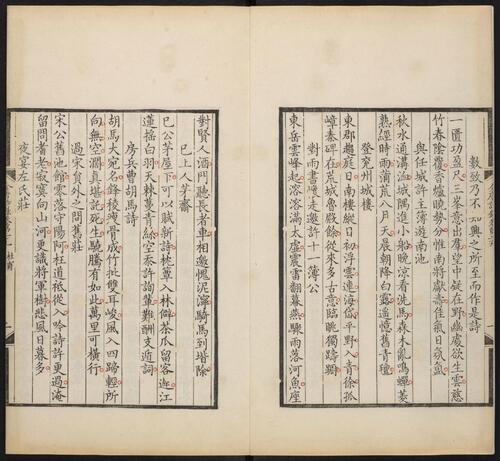 數致乃不知興之所至而作是詩
一匱功盈尺三峯意出羣望中疑在野幽處欲生雲慈
竹春陰覆香爐曉勢分惟南將獻壽佳氣日氛氲
與任城許主簿遊南池
秋水通溝洫城隅進小船晚涼看洗馬森木亂鳴蟬菱
熟經時雨蒲荒八月天晨朝降白露遙憶舊青氊
登兖州城樓
東郡趨庭日南樓縱目初浮雲連海岱平野入青徐孤
嶂秦碑在荒城魯殿餘從來多古意臨眺獨躊躕
對雨書懷走邀許十一簿公
東岳雲峰起溶溶滿太虛震雷翻幕燕驟雨落河魚座
對賢人酒門聽長者車相邀愧泥濘騎馬到堦除
巳上人茅齋
巳公茅屋下可以賦新詩枕簟入林僻茶瓜留客遲江
蓮搖白羽天棘蔓青絲空忝許詢輩難酬支遁詞
房兵曹胡馬詩
胡馬大宛名鋒稜瘦骨成竹批雙耳峻風入四蹄輕所
向無空濶真堪託死生驍騰有如此萬里可橫行
過宋員外之問舊莊
宋公舊池館零落守陽阿枉道祗從入吟詩許更過淹
留問耆老寂寞向山河更識將軍樹悲風日暮多
夜宴左氏莊